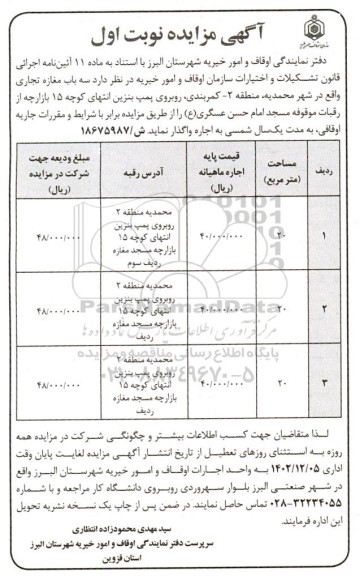 آگهی مزایده نوبت اول
دفتر نمایندگی اوقاف و امور خیریه شهرستان البرز با استناد به ماده ۱۱ آئین‌نامه اجرائی
قانون تشکیلات و اختیارات سازمان اوقاف و امور خیریه در نظر دارد سه باب مغازه تجاری
واقع در شهر محمدیه، منطقه ۲- کمربندی، روبروی پمپ بنزین انتهای کوچه ۱۵ بازارچه از
رقبات موقوفه مسجد امام حسن عسگری(ع) را از طریق مزایده برابر با شرایط و مقررات جاریه
اوقافی، به مدت یک‌سال شمسی به اجاره واگذار نماید. ش/۱۸۶۷۵۹۸۷
ردیف	مساحت (متر مربع)	قیمت پایه اجاره ماهیانه (ریال)	آدرس رقبه	مبلغ ودیعه جهت شرکت در مزایده (ریال)
۱	۲۰	۴۰/۰۰۰/۰۰۰	محمدیه منطقه ۲ روبروی پمپ بنزین انتهای کوچه ۱۵ بازارچه مسجد مغازه ردیف سوم	۴۸/۰۰۰/۰۰۰
۲	۲۰	۴۰/۰۰۰/۰۰۰	محمدیه منطقه ۲ روبروی پمپ بنزین انتهای کوچه ۱۵ بازارچه مسجد مغازه ردیف	۴۸/۰۰۰/۰۰۰
۳	۲۰	۴۰/۰۰۰/۰۰۰	محمدیه منطقه ۲ روبروی پمپ بنزین انتهای کوچه ۱۵ بازارچه مسجد مغازه ردیف	۴۸/۰۰۰/۰۰۰
ParsNamadData
پایگاه اطلاع رسانی مناقصه و مزایده
۰۲۱-۸۸۳۴۹۶۷۰-۵
لذا متقاضیان جهت کسب اطلاعات بیشتر و چگونگی شرکت در مزایده همه
روزه به استثنای روزهای تعطیل از تاریخ انتشار آگهی مزایده لغایت پایان وقت
اداری ۱۴۰۲/۱۲/۰۵ به واحد اجارات اوقاف و امور خیریه شهرستان البرز واقع
در شهر صنعتی البرز بلوار سهروردی روبروی دانشگاه کار مراجعه و با شماره
۰۲۸-۳۲۲۳۴۰۵۵ تماس حاصل نمایند. در ضمن پس از چاپ یک نسخه نشریه تحویل
این اداره فرمایند.
سید مهدی محمودزاده انتظاری
سرپرست دفتر نمایندگی اوقاف و امور خیریه شهرستان البرز
استان قزوین